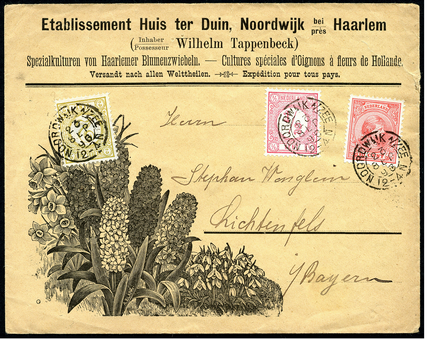 Etablissement Huis ter Duin, Noordwijk bei près Haarlem
(Inhaber Possesseur Wilhelm Tappenbeck)
Spezialkulturen von Haarlemer Blumenzwiebeln. — Cultures spéciales d'Oignons à fleurs de Hollande.
Versandt nach allen Welttheilen. — Expédition pour tous pays.
NOORDWIJK A/ZEE
NOORDWIJK A/ZEE
NOORDWIJK A/ZEE
Herrn
Stephan
Lichtenfels
i/Bayern